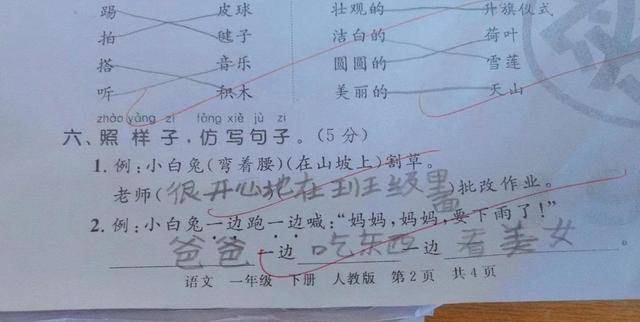 踢 皮球 壮观的 升旗仪式
拍 毽子 洁白的 荷叶
搭 音乐 圆圆的 雪莲
听 积木 美丽的 天山
zhào yàng zi fǎng xiě jù zi
六、照样子,仿写句子。(5分)
1. 例:小白兔(弯着腰)(在山坡上)割草。
老师(很开心地在班级里面)批改作业。
2. 例:小白兔一边跑一边喊:“妈妈,妈妈,要下雨了!”
爸爸一边吃东西一边看美女。
语文 一年级 下册 人教版 第2页 共4页